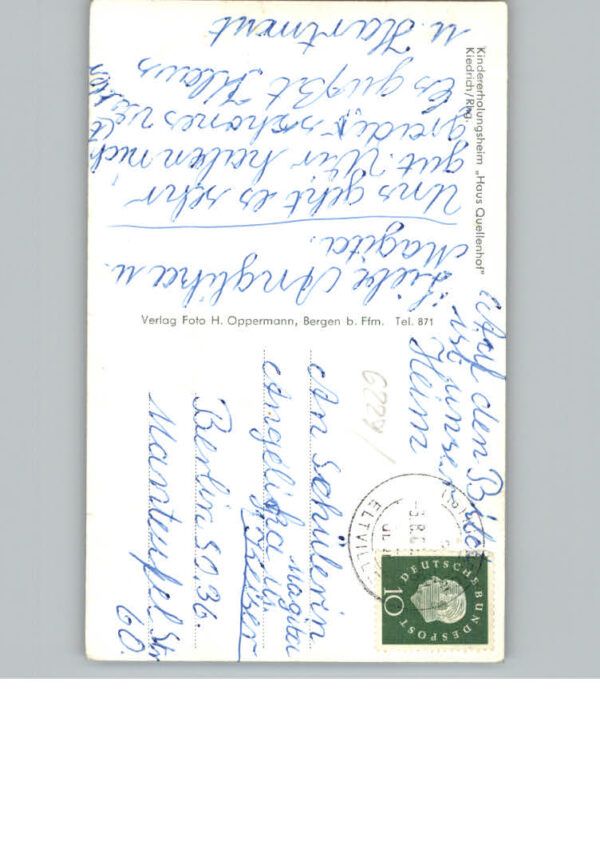 Kindererholungsheim „Haus Quellenhof"
Kiedrich/Rhg.
Liebe Anglika u.
Magita.
Uns geht es sehr
gut. Wir haben nich
grade schönes
Es güßt Klaus
u. Hartmut
Auf den Bild
ist unser
Heim
Verlag Foto H. Oppermann, Bergen b. Ffm. Tel. 871
6229/
An Schülerin
Angelika u.
Magita
Berlin S.O. 36.
Manteufel Str
60.
ELTVIL
DEUTSCHE BUNDESPOST
10